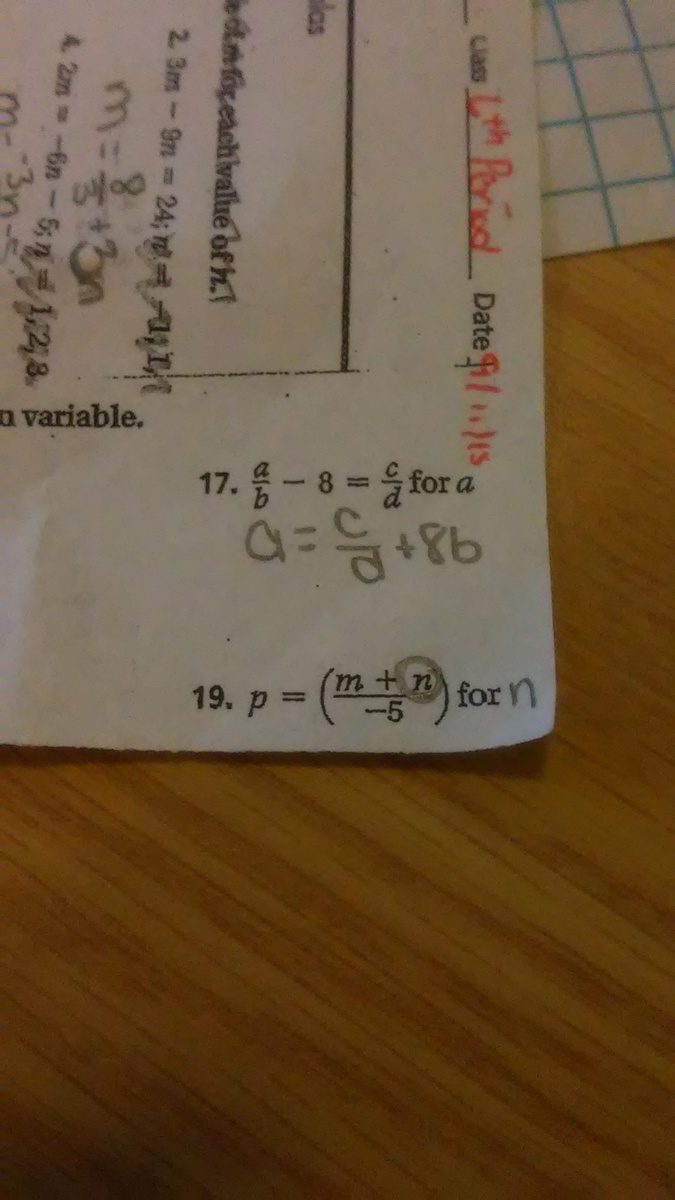 Class 4th Period Date 9/11/15
each value of n.
2. 3m - 9n = 24; n = -1, 1,
m = 8/3 + 3n
4. 2m = -6n - 5; n = 1, 2, 3
m = -3n - 5
n variable.
17. a/b - 8 = c/d for a
a = c/d + 8b
19. p = (m + n / -5) for n